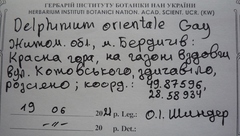 ГЕРБАРІЙ ІНСТИТУТУ БОТАНІКИ НАН УКРАЇНИ
HERBARIUM INSTITUTI BOTANICI NATION. ACAD. SCIENT. UCR. (KW)
Delphinium orientale Gay
Житом. обл., м. Бердичів:
Красна гора, на газоні вздовж
вул. Котовського, здичавіло,
розсіяно; коорд.: 49.87596,
28.58934
19 06 20 р. О.І. Шиндер
–//– 20 р. Det.: